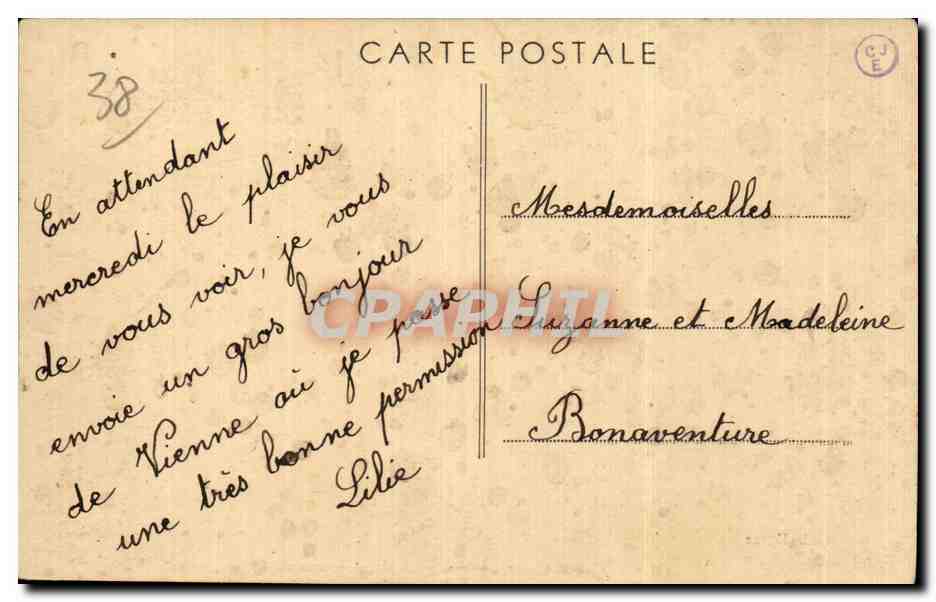 CARTE POSTALE
CJ
E
38
En attendant
mercredi le plaisir
de vous voir, je vous
envoie un gros bonjour
de Vienne où je passe
une très bonne permission
Lilie
Mesdemoiselles
Suzanne et Madeleine
Bonaventure
CPAPHIL